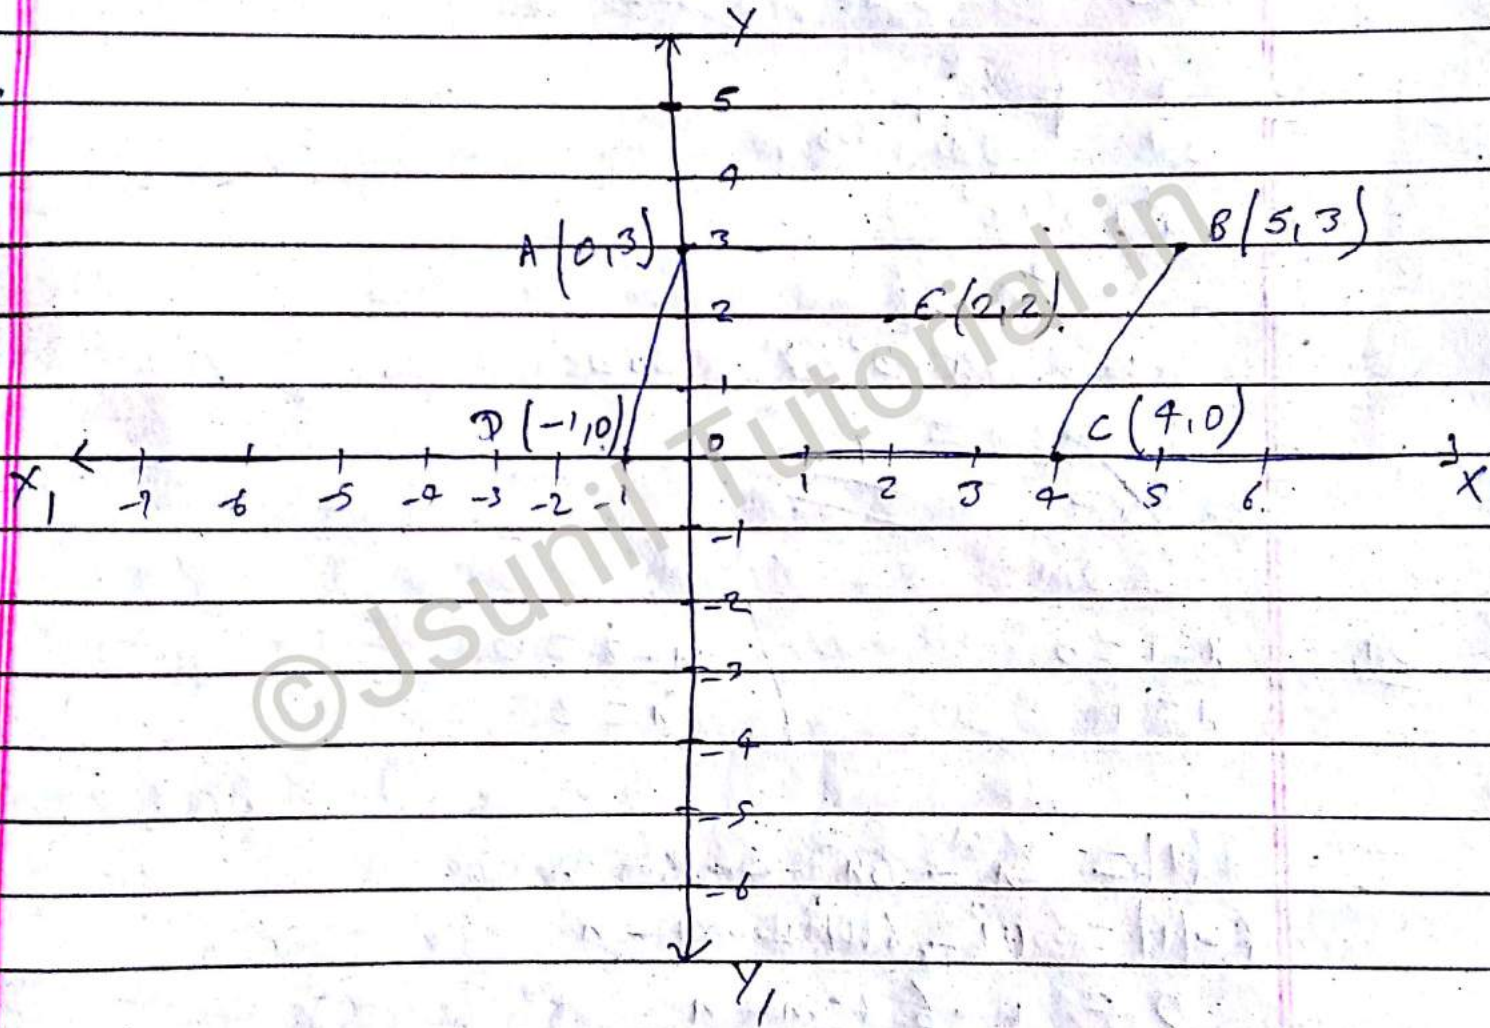 Y
5
4
3
A (0,3)
B (5,3)
2
E (2,2).
1
D (-1,0)
0
C (4,0)
X1
-7 -6 -5 -4 -3 -2 -1 1 2 3 4 5 6
X
-1
-2
-3
-4
-5
-6
Y1
©Jsunil Tutorial.in